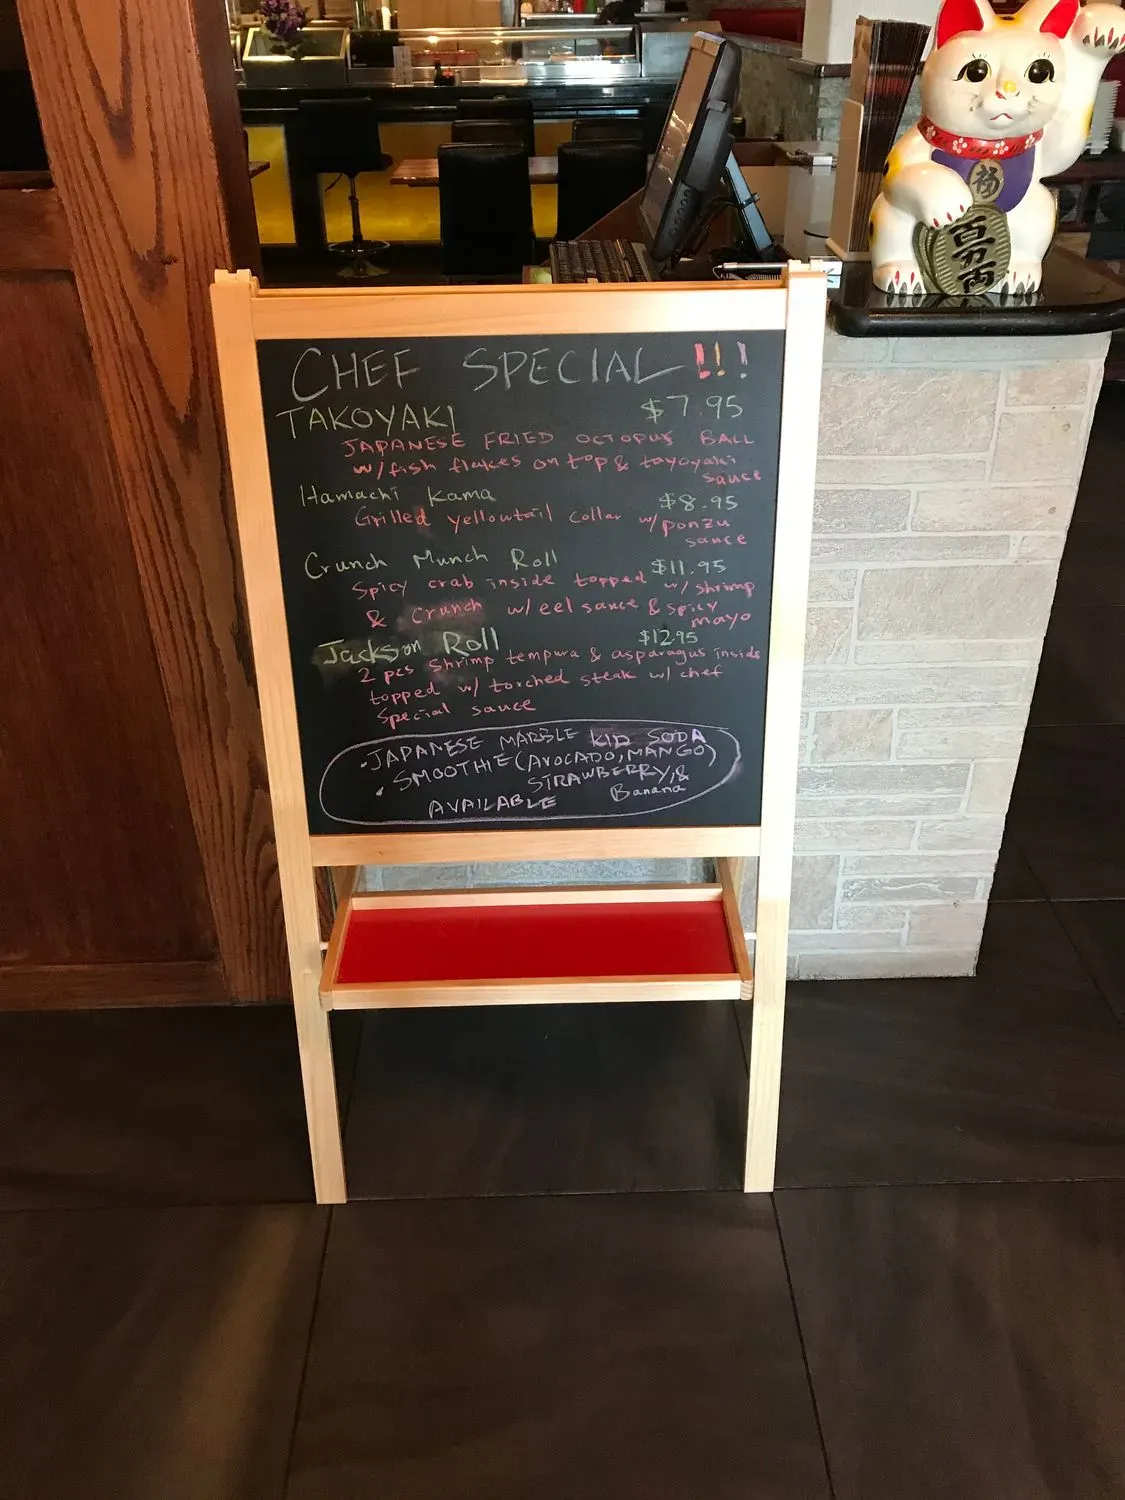 CHEF SPECIAL !!!
TAKOYAKI $7.95
JAPANESE FRIED OCTOPUS BALL
w/fish flakes on top & tayoyaki
sauce
Hamachi Kama $8.95
Grilled yellowtail collar w/ponzu
sauce
Crunch Munch Roll $11.95
Spicy crab inside topped w/ shrimp
& crunch w/eel sauce & spicy
mayo
Jackson Roll $12.95
2 pcs shrimp tempura & asparagus inside
topped w/ torched steak w/ chef
special sauce
·JAPANESE MARBLE KID SODA
·SMOOTHIE (AVOCADO, MANGO)
STRAWBERRY, &
Banana
AVAILABLE
福
百万両